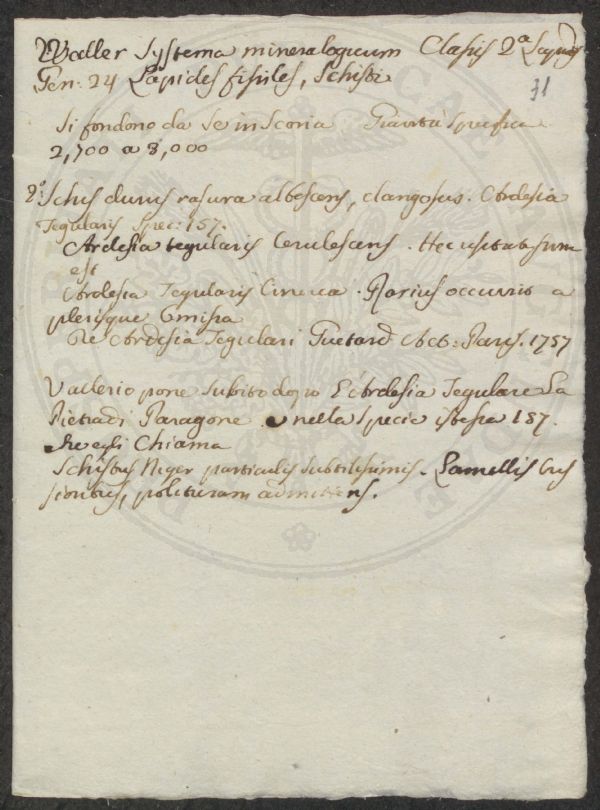 Waller Systema mineralogicum Classis 2ª
Gen: 24 Lapides fissiles, Schisti
31
Si fondono da se in Scoria Gravità specifica
2,700 a 3,000
8º Schis durus rasura albescens, clangosus. Ardesia
Tegularis Spec: 157.
Ardesia tegularis Cerulescens. Hec usitatissima
est
Ardesia Tegularis Cinerea. Rarius occurrit a
plerisque Omissa
De Ardesia Tegulari Guetard Act: Paris. 1757
Vallerio pone Subito dopo L'Ardesia Tegulare La
Pietra di Paragone nella Specie istessa 157.
che egli Chiama
Schistus Niger particulis subtilissimis. Lamellis Cras
sioribus, polituram admittens.